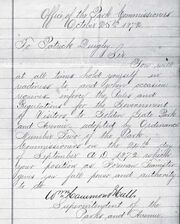 Office of the Park Commissioners
October 25th 1872
To Patrick Quigley
Sir
You will
at all times hold yourself in
readiness to and before occasion
requires enforce the Rules and
Regulations for the Government
of Visitors to Golden Gate Park
and Avenue, adopted by Ordinance
Number Two of the Park
Commissioners on the 24th day
of September A.D. 1872
your position as
gives you full power and authority
to
Wm Hammond Hall
Superintendent of the
Parks and Avenue